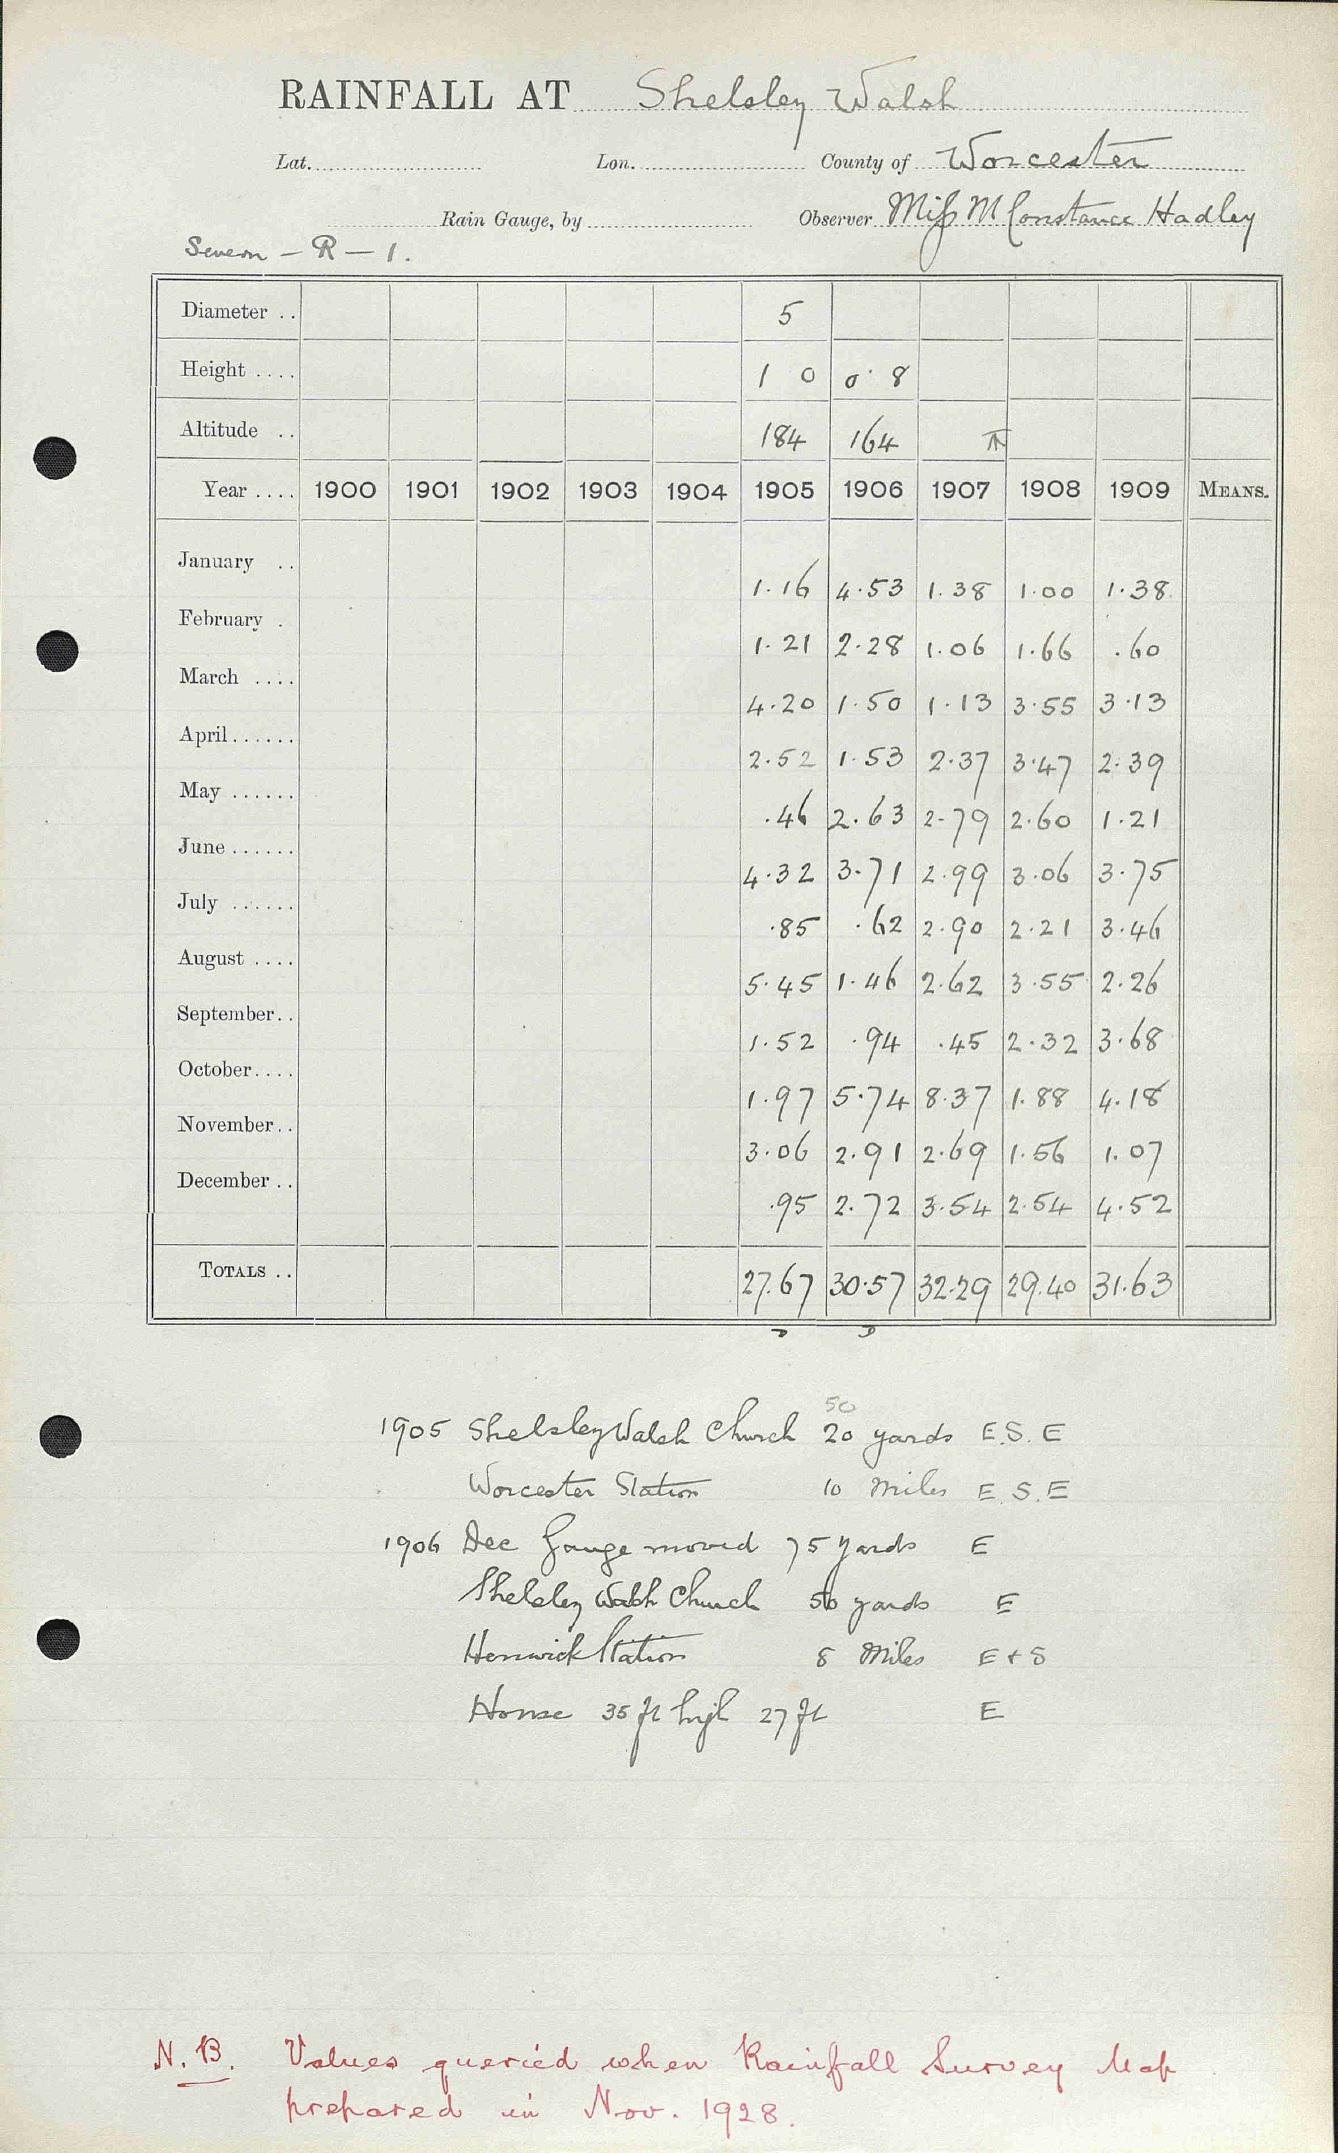 RAINFALL AT Shelsley Walsh
Lat. Lon. County of Worcester
Rain Gauge, by Observer Miss M Constance Hadley
Severn – R – 1.
Diameter .. 5
Height .... 1 0 0 8
Altitude .. 184 164
Year .... 1900 1901 1902 1903 1904 1905 1906 1907 1908 1909 MEANS.
January .. 1.16 4.53 1.38 1.00 1.38
February . 1.21 2.28 1.06 1.66 .60
March .... 4.20 1.50 1.13 3.55 3.13
April...... 2.52 1.53 2.37 3.47 2.39
May ...... .46 2.63 2.79 2.60 1.21
June ...... 4.32 3.71 2.99 3.06 3.75
July ...... .85 .62 2.90 2.21 3.46
August .... 5.45 1.46 2.62 3.55 2.26
September.. 1.52 .94 .45 2.32 3.68
October.... 1.97 5.74 8.37 1.88 4.18
November.. 3.06 2.91 2.69 1.56 1.07
December .. .95 2.72 3.54 2.54 4.52
TOTALS .. 27.67 30.57 32.29 29.40 31.63
50
1905 Shelsley Walsh Church 20 yards E.S.E
Worcester Station 10 Miles E.S.E
1906 Dec Gauge moved 75 yards E
Shelsley Walsh Church 50 yards E
Henwick Station 8 Miles E + S
House 35 ft high 27 ft E
N.B. Values queried when Rainfall Survey Map
prepared in Nov. 1928.